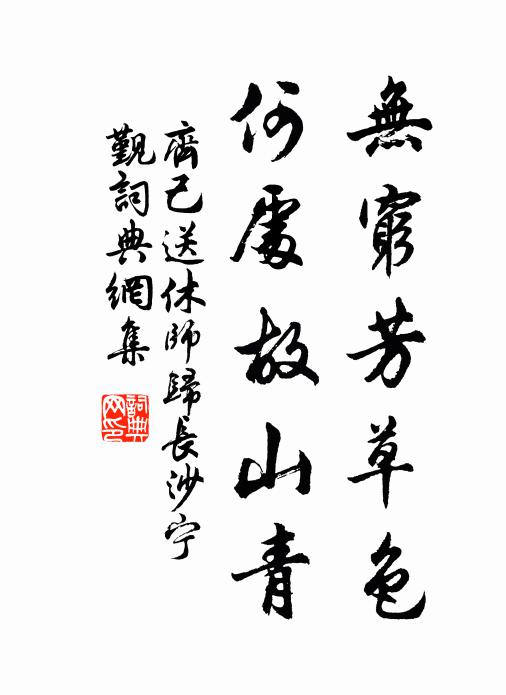 無窮芳草色
何處故山青
齊己送休師歸長沙宁
觐詞典網集
詞典网印